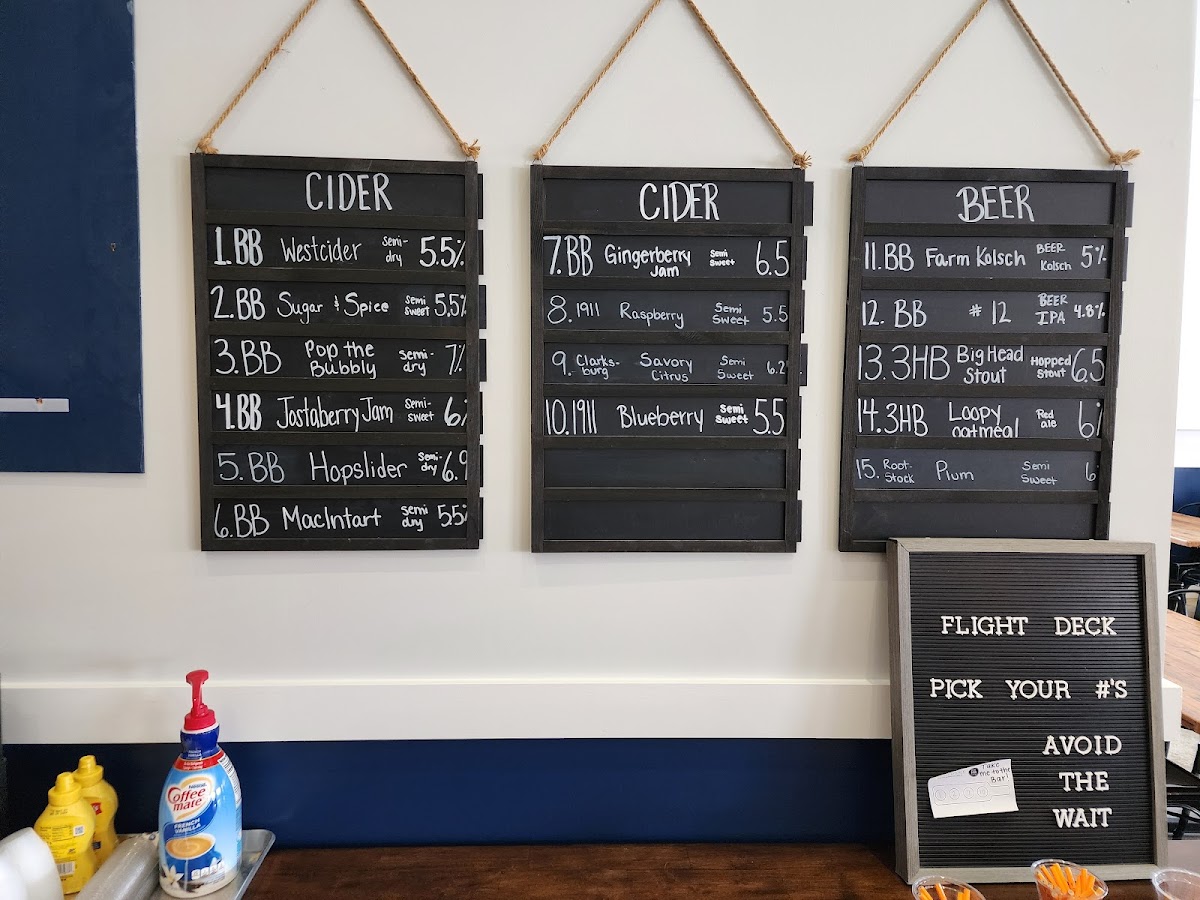 CIDER
1. BB Westcider Semi-dry 5.5%
2. BB Sugar & Spice Semi Sweet 5.5%
3. BB Pop the Bubbly Semi-dry 7%
4. BB Jostaberry Jam Semi-sweet 6%
5. BB Hopslider Semi-dry 6.9
6. BB MacIntart Semi dry 5.5%
CIDER
7. BB Gingerberry Jam Semi Sweet 6.5
8. 1911 Raspberry Semi Sweet 5.5
9. Clarks-burg Savory Citrus Semi Sweet 6.2
10. 1911 Blueberry Semi Sweet 5.5
BEER
11. BB Farm Kolsch BEER Kolsch 5%
12. BB #12 BEER IPA 4.8%
13. 3HB Big Head Stout Hopped Stout 6.5
14. 3HB Loopy oatmeal Red ale 6%
15. Root-Stock Plum Semi Sweet 6
FLIGHT DECK
PICK YOUR #'S
AVOID
THE
WAIT
Take
me to the
Bar!
Nestle
Coffee
mate
FRENCH
VANILLA